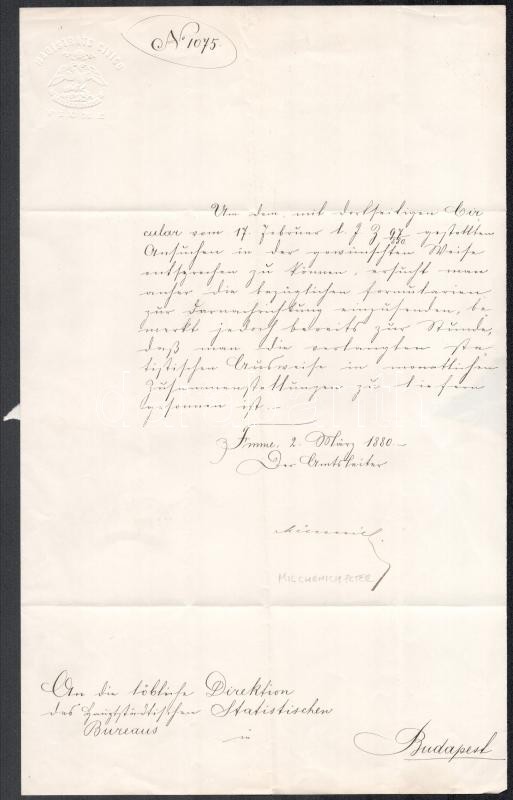 MAGISTRATO CIVICO
FIUME
No 1075.
Um dem, mit dortseitigen Cir
cular vom 17 Februar l. J. Z 97/250 gestellten
Ansuchen in der gewünschten Weise
entsprechen zu können, ersucht man
anher die bezüglichen Formularien
zur Darnachrichtung einzusenden, be
merkt jedoch bereits zur Stunde,
daß man die verlangten sta
tistischen Ausweise in monatlichen
Zusammenstellungen zu liefern
gesonnen ist.
Fiume, 2. März 1880.
Der Amtsleiter
MILCHENICH PETER
An die löbliche Direktion
des Hauptstädtischen Statistischen
Bureaus
in
Budapest